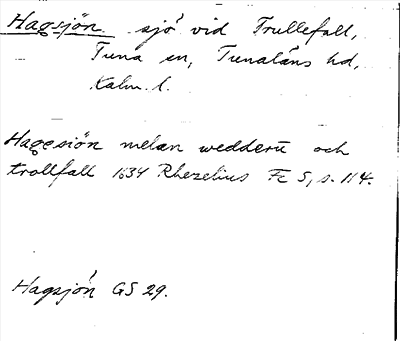 Hagsjön. sjö vid Trullefall,
Tuna sn, Tunaläns hd,
Kalm. l.
Hagesiön melan wedderū och
trollfall 1634 Rhezelius Fc 5, s. 114.
Hagsjön GS 29.